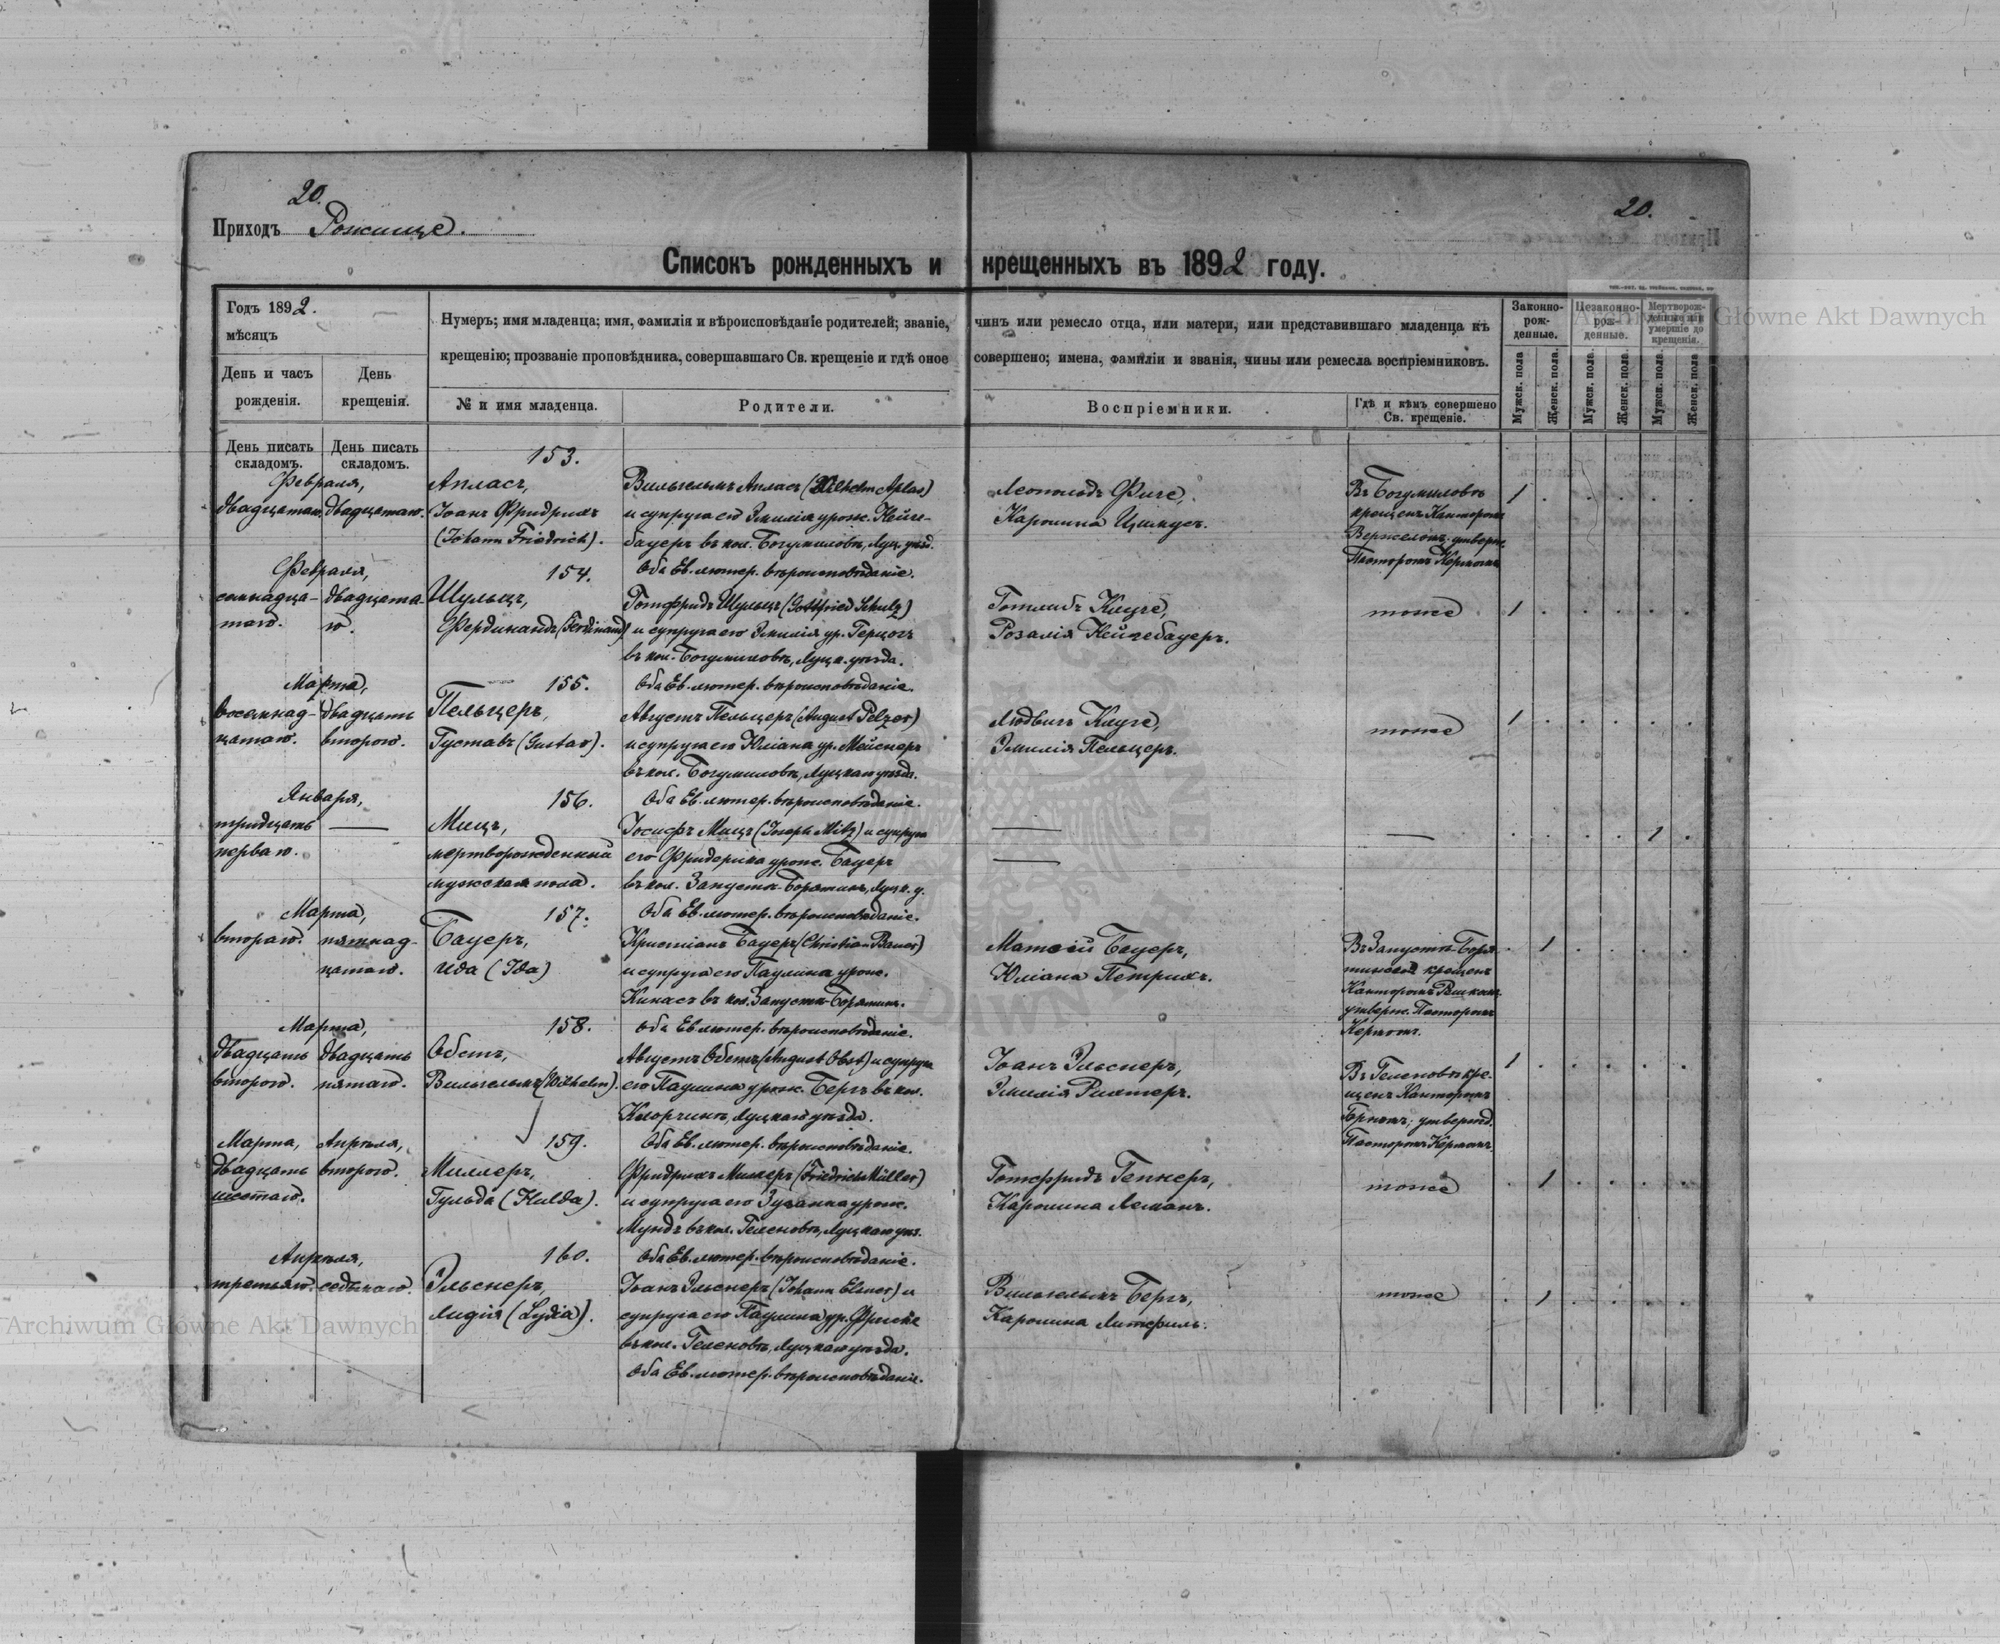 20.
20.
Приходъ Рожище.
Списокъ рожденныхъ и крещенныхъ въ 1892 году.
Годъ 1892.
мѣсяцъ
День и часъ рожденія.
День крещенія.
Нумеръ; имя младенца; имя, фамилія и вѣроисповѣданіе родителей; званіе, чинъ или ремесло отца, или матери, или представившаго младенца къ
крещенію; прозваніе проповѣдника, совершавшаго Св. крещеніе и гдѣ оное совершено; имена, фамиліи и званія, чины или ремесла воспріемниковъ.
№ и имя младенца.
Родители.
Воспріемники.
Гдѣ и кѣмъ совершено Св. крещеніе.
Законно-рож-денные.
Незаконно-рож-денные.
Мертворож-денные или умершіе до крещенія.
Мужск. пола
Женск. пола.
Мужск. пола.
Женск. пола.
Мужск. пола.
Женск. пола
День писать складомъ.
День писать складомъ.
153.
Февраля,
двадцатаго. двадцатаго.
Апласъ,
Іоанъ Фридрихъ
(Johann Friedrich).
Вильгельмъ Апласъ (Wilhelm Aplas)
и супруга его Эмилія урож. Нейге-
бауеръ въ кол. Богумиловкѣ, Луц. уѣзд.
Оба Ев. лютер. вѣроисповѣданіе.
Леопольдъ Фиге,
Каролина Цилкусъ.
Въ Богумиловкѣ
крещенъ Канторомъ
утверж.
Пасторомъ Кермомъ
1
154.
Февраля,
семнадца-
таго.
двадцата-
го.
Шульцъ,
Фердинандъ (Ferdinand)
Готфридъ Шульцъ (Gottfried Schulz)
и супруга его Эмилія ур. Герцогъ
въ кол. Богумиловкѣ, Луцк. уѣзда.
Оба Ев. лютер. вѣроисповѣданіе.
Готлибъ Клуге,
Розалія Нейгебауеръ.
тоже
1
155.
Марта,
восемнад-
цатаго.
двадцать
второго.
Пельцеръ,
Густавъ (Gustav).
Августъ Пельцеръ (August Pelzer)
и супруга его Юліана ур. Мейснеръ
въ кол. Богумиловкѣ, Луцкаго уѣзда.
Оба Ев. лютер. вѣроисповѣданіе.
Людвигъ Клуге,
Эмилія Пельцеръ.
тоже
1
156.
Января,
тридцать
перваго.
Мицъ,
мертворожденный
мужскаго пола.
Іосифъ Мицъ (Joseph Mitz) и супруга
его Фридерика урож. Бауеръ
въ кол. Запустъ-Борятинъ, Луцк. у.
Оба Ев. лютер. вѣроисповѣданіе.
1
157.
Марта,
втораго.
пятнад-
цатаго.
Бауеръ,
Ида (Ida)
Христіанъ Бауеръ (Christian Bauer)
и супруга его Паулина урож.
Кинасъ въ кол. Запустъ-Борятинъ.
Оба Ев. лютер. вѣроисповѣданіе.
Матѳій Бауеръ,
Юліана Петрихъ.
Въ Запустъ-Боря-
крещенъ
Канторомъ
утверж. Пасторомъ
Кермомъ.
1
158.
Марта,
двадцать
второго.
двадцать
пятаго.
Обстъ,
Вильгельмъ (Wilhelm).
Августъ Обстъ (August Obst) и супруга
его Паулина урож. Бергъ въ кол.
Клорчинъ, Луцкаго уѣзда.
Оба Ев. лютер. вѣроисповѣданіе.
Іоанъ Эльснеръ,
Эмилія Рихтеръ.
Въ Геленовкѣ кре-
щенъ Канторомъ
утвержд.
Пасторомъ Кермомъ
1
159.
Марта, Апрѣля,
двадцать
шестаго.
второго.
Миллеръ,
Гульда (Hulda).
Фридрихъ Миллеръ (Friedrich Müller)
и супруга его Зузанна урож.
Мундъ въ кол. Геленовкѣ, Луцкаго уѣз.
Оба Ев. лютер. вѣроисповѣданіе.
Готфридъ Геннеръ,
Каролина Леманъ.
тоже
1
160.
Апрѣля,
третьяго. седьмаго.
Эльснеръ,
Лидія (Lydia).
Іоанъ Эльснеръ (Johann Elsner) и
супруга его Паулина ур. Фриске
въ кол. Геленовкѣ, Луцкаго уѣзда.
Оба Ев. лютер. вѣроисповѣданіе.
Вильгельмъ Бергъ,
Каролина Литфиль.
тоже
1
Archiwum Główne Akt Dawnych
Archiwum Główne Akt Dawnych